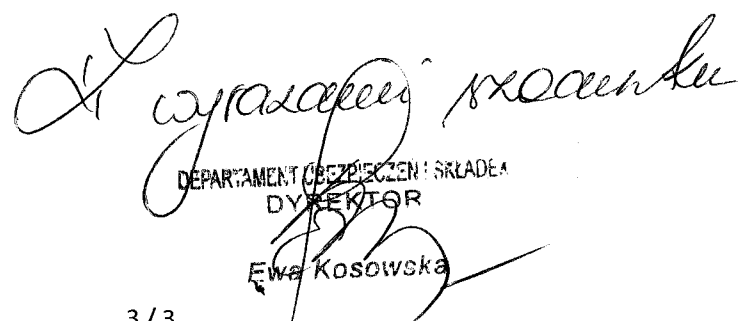 Z wyrazami szacunku
DEPARTAMENT UBEZPIECZEŃ I SKŁADEK
DYREKTOR
Ewa Kosowska
3/3